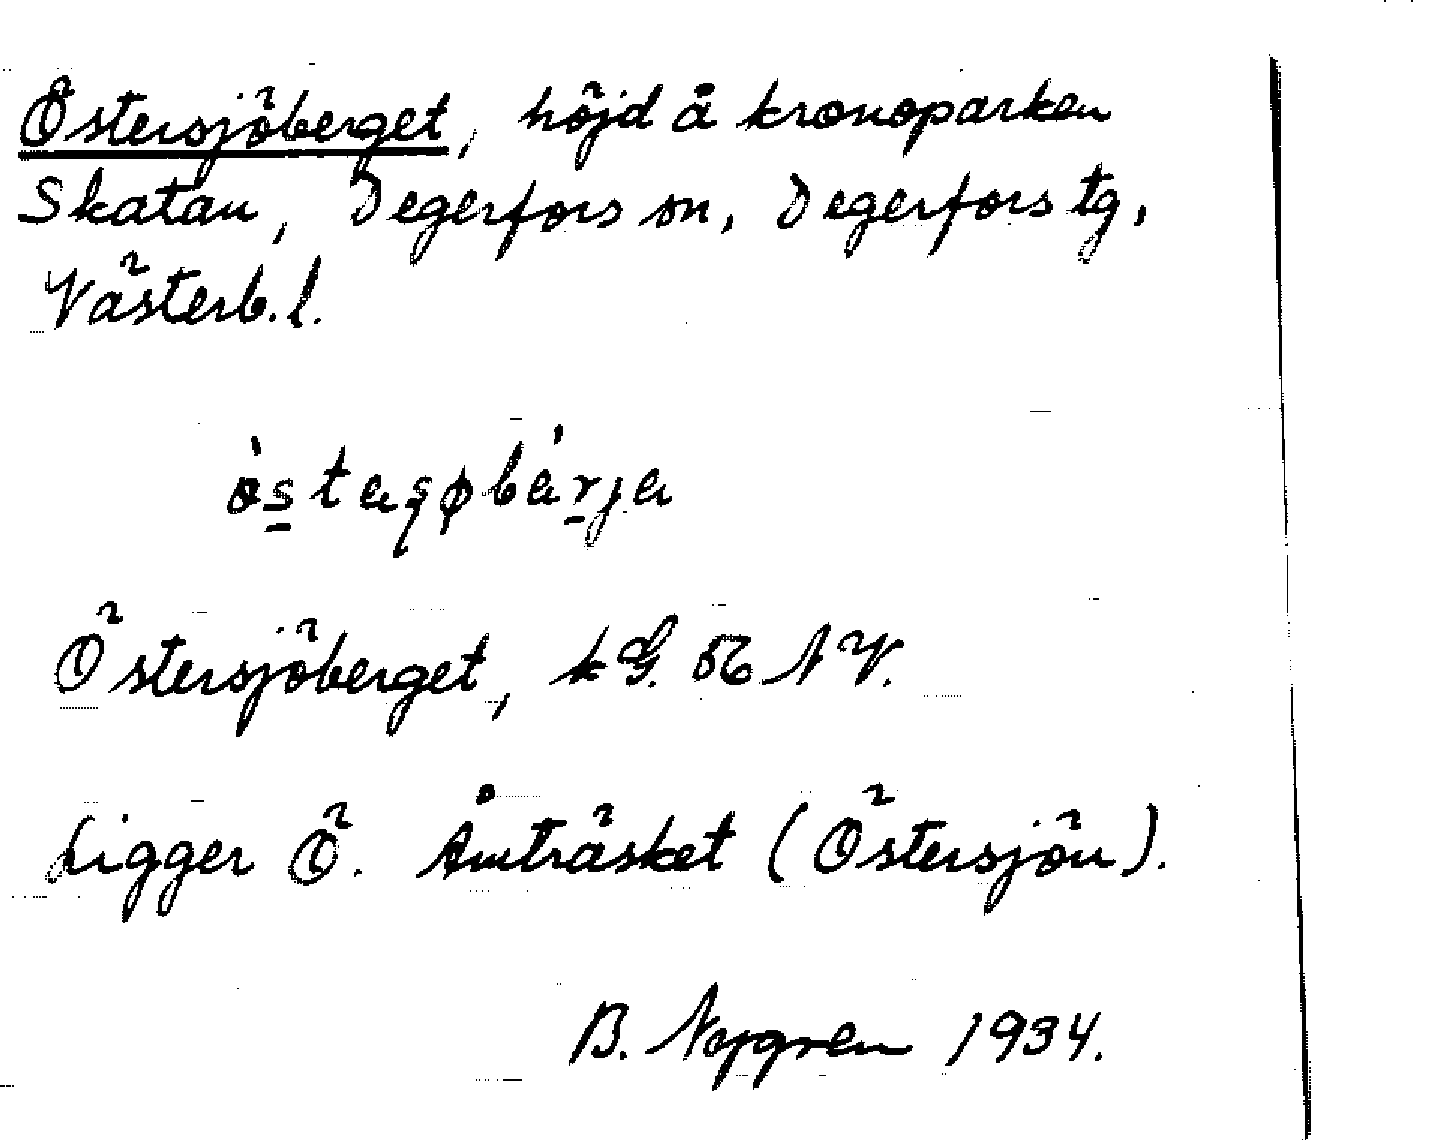 Östersjöberget, höjd å kronoparken
Skatan, Degerfors sn, Degerfors tg,
Västerb. l.
Östersjöberget, kG. 56 NV.
Ligger Ö. Åmträsket (Östersjön).
B. Nygren 1934.